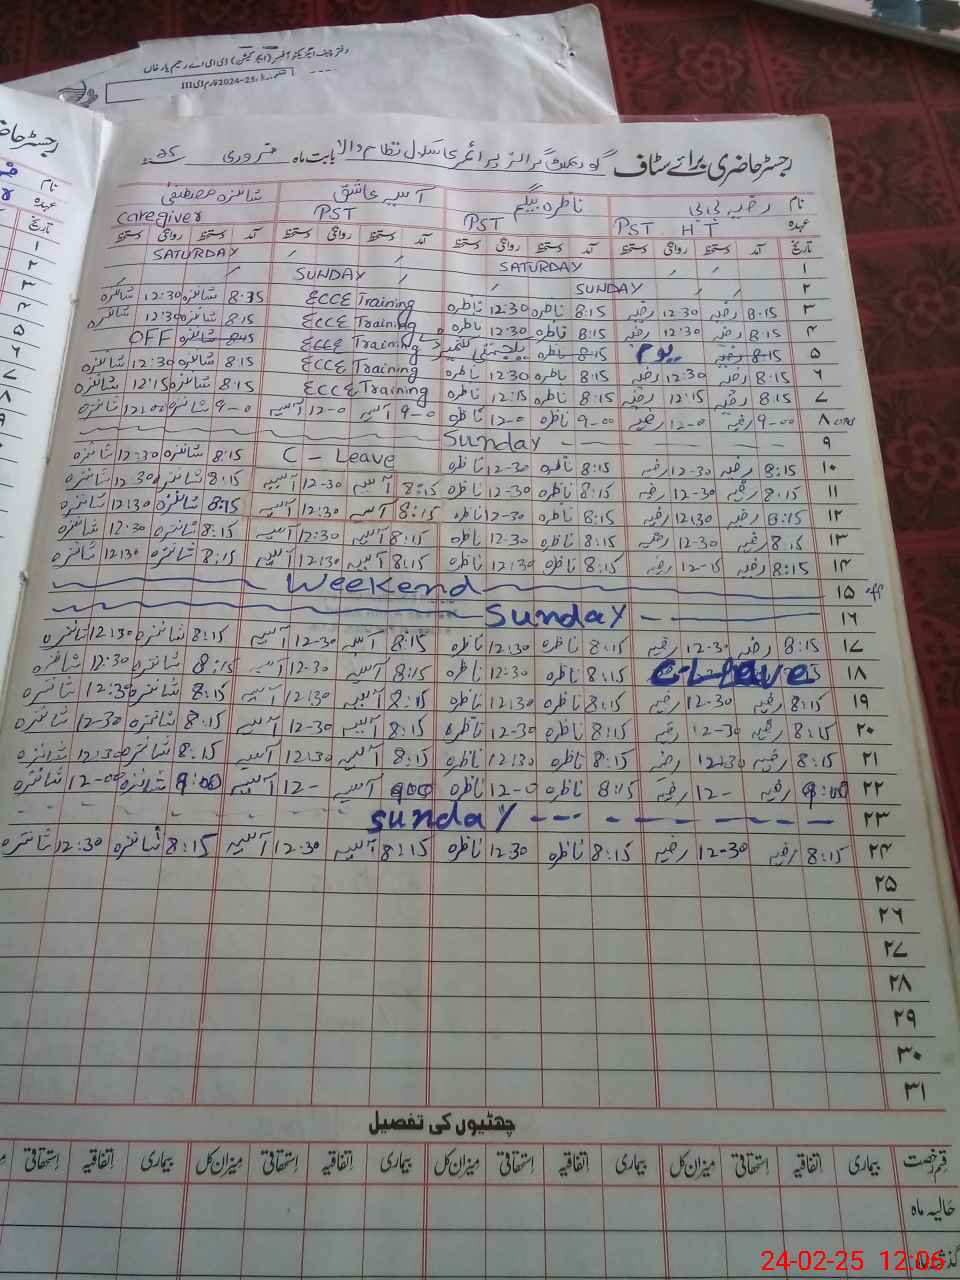 دفتر چیف ایگزیکٹو آفیسر (ایجوکیشن) ڈی ای اے رحیم یار خاں
رجسٹر حاضری برائے سٹاف گورنمنٹ گرلز پرائمری سکول نظام والا بابت ماہ فروری 25
نام رضیہ بی بی ناظرہ بیگم آسیہ عاشق شائزہ مصطفیٰ
عہدہ PST HT PST PST caregiver
تاریخ آمد دستخط روانگی دستخط آمد دستخط روانگی دستخط آمد دستخط روانگی دستخط آمد دستخط روانگی دستخط
۱ SATURDAY SATURDAY
۲ SUNDAY SUNDAY
۳ 8:15 رضیہ 12:30 رضیہ 8:15 ناظرہ 12:30 ناظرہ ECCE Training 8:35 شائزہ 12:30 شائزہ
۴ 8:15 رضیہ 12:30 رضیہ 8:15 ناظرہ 12:30 ناظرہ ECCE Training 8:15 شائزہ 12:30 شائزہ
۵ 8:15 رضیہ یوم یکجہتی کشمیر 8:15 ناظرہ ECCE Training 8:45 شائزہ OFF
۶ 8:15 رضیہ 12:30 رضیہ 8:15 ناظرہ 12:30 ناظرہ ECCE Training 8:15 شائزہ 12:30 شائزہ
۷ 8:15 رضیہ 12:15 رضیہ 8:15 ناظرہ 12:15 ناظرہ ECCE Training 8:15 شائزہ 12:15 شائزہ
۸ 9-00 رضیہ 12-0 رضیہ 9-00 ناظرہ 12-0 ناظرہ 9-0 آسیہ 12-0 آسیہ 9-0 شائزہ 12:00 شائزہ
۹ Sunday
۱۰ 8:15 رضیہ 12-30 رضیہ 8:15 ناظرہ 12-30 ناظرہ C - Leave 8:15 شائزہ 12:30 شائزہ
۱۱ 8:15 رضیہ 12-30 رضیہ 8:15 ناظرہ 12-30 ناظرہ 8:15 آسیہ 12-30 آسیہ 8:15 شائزہ 12:30 شائزہ
۱۲ 8:15 رضیہ 12:30 رضیہ 8:15 ناظرہ 12-30 ناظرہ 8:15 آسیہ 12:30 آسیہ 8:15 شائزہ 12:30 شائزہ
۱۳ 8:15 رضیہ 12-30 رضیہ 8:15 ناظرہ 12-30 ناظرہ 8:15 آسیہ 12:30 آسیہ 8:15 شائزہ 12:30 شائزہ
۱۴ 8:15 رضیہ 12-15 رضیہ 8:15 ناظرہ 12:30 ناظرہ 8:15 آسیہ 12:30 آسیہ 8:15 شائزہ 12:30 شائزہ
۱۵ off Weekend
۱۶ Sunday
۱۷ 8:15 رضیہ 12-30 رضیہ 8:15 ناظرہ 12:30 ناظرہ 8:15 آسیہ 12-30 آسیہ 8:15 شائزہ 12:30 شائزہ
۱۸ C-Leave 8:15 ناظرہ 12:30 ناظرہ 8:15 آسیہ 12-30 آسیہ 8:15 شائزہ 12:30 شائزہ
۱۹ 8:15 رضیہ 12-30 رضیہ 8:15 ناظرہ 12:30 ناظرہ 8:15 آسیہ 12:30 آسیہ 8:15 شائزہ 12:30 شائزہ
۲۰ 8:15 رضیہ 12-30 رضیہ 8:15 ناظرہ 12-30 ناظرہ 8:15 آسیہ 12-30 آسیہ 8:15 شائزہ 12-30 شائزہ
۲۱ 8:15 رضیہ 12:30 رضیہ 8:15 ناظرہ 12:30 ناظرہ 8:15 آسیہ 12:30 آسیہ 8:15 شائزہ 12:30 شائزہ
۲۲ 9:00 رضیہ 12- رضیہ 8:15 ناظرہ 12-0 ناظرہ 900 آسیہ 12- آسیہ 9:00 شائزہ 12-00 شائزہ
۲۳ sunday
۲۴ 8:15 رضیہ 12-30 رضیہ 8:15 ناظرہ 12:30 ناظرہ 8:15 آسیہ 12:30 آسیہ 8:15 شائزہ 12:30 شائزہ
۲۵
۲۶
۲۷
۲۸
۲۹
۳۰
۳۱
چھٹیوں کی تفصیل
قسم رخصت بیماری اتفاقیہ استحقاقی میزان کل بیماری اتفاقیہ استحقاقی میزان کل بیماری اتفاقیہ استحقاقی میزان کل بیماری اتفاقیہ استحقاقی
حالیہ ماہ
24-02-25 12:06